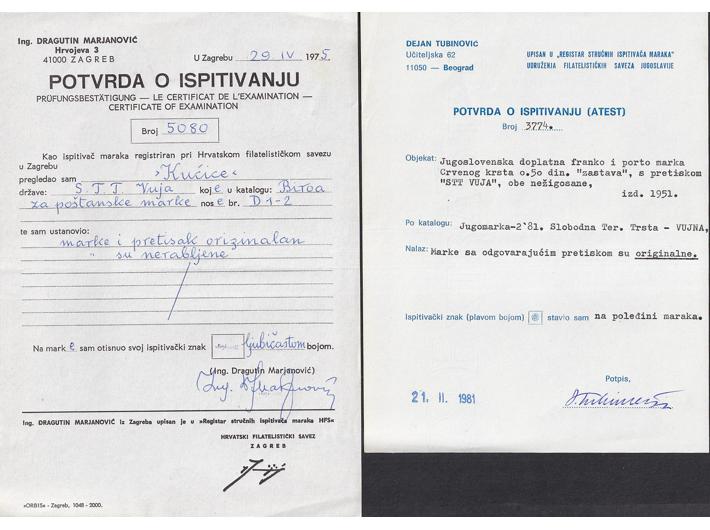 Ing. DRAGUTIN MARJANOVIĆ
Hrvojeva 3
41000 ZAGREB
U Zagrebu 29 IV 1975.
POTVRDA O ISPITIVANJU
PRÜFUNGSBESTÄTIGUNG — LE CERTIFICAT DE L'EXAMINATION —
CERTIFICATE OF EXAMINATION
Broj 5080
Kao ispitivač maraka registriran pri Hrvatskom filatelističkom savezu
u Zagrebu
pregledao sam "Kućice"
države: S.T.T. Vuja koje u katalogu: Biroa
za poštanske marke nose br. D 1-2
te sam ustanovio:
marke i pretisak originalan
" su nerabljene
Na marke sam otisnuo svoj ispitivački znak ljubičastom bojom.
(Ing. Dragutin Marjanović)
Ing. DRAGUTIN MARJANOVIĆ iz Zagreba upisan je u »Registar stručnih ispitivača maraka HFS«
HRVATSKI FILATELISTIČKI SAVEZ
ZAGREB
»ORBIS« - Zagreb, 1048 - 2000.
DEJAN TUBINOVIĆ
Učiteljska 62
11050 — Beograd
UPISAN U „REGISTAR STRUČNIH ISPITIVAČA MARAKA"
UDRUŽENJA FILATELISTIČKIH SAVEZA JUGOSLAVIJE
POTVRDA O ISPITIVANJU (ATEST)
Broj 3774.
Objekat: Jugoslovenska doplatna franko i porto marka
Crvenog krsta o.5o din. "zastava", s pretiskom
"STT VUJA", obe nežigosane,
izd. 1951.
Po katalogu: Jugomarka-2'81. Slobodna Ter. Trsta - VUJNA,
Nalaz: Marke sa odgovarajućim pretiskom su originalne.
Ispitivački znak (plavom bojom) stavio sam na poleđini maraka.
Potpis,
21. II. 1981